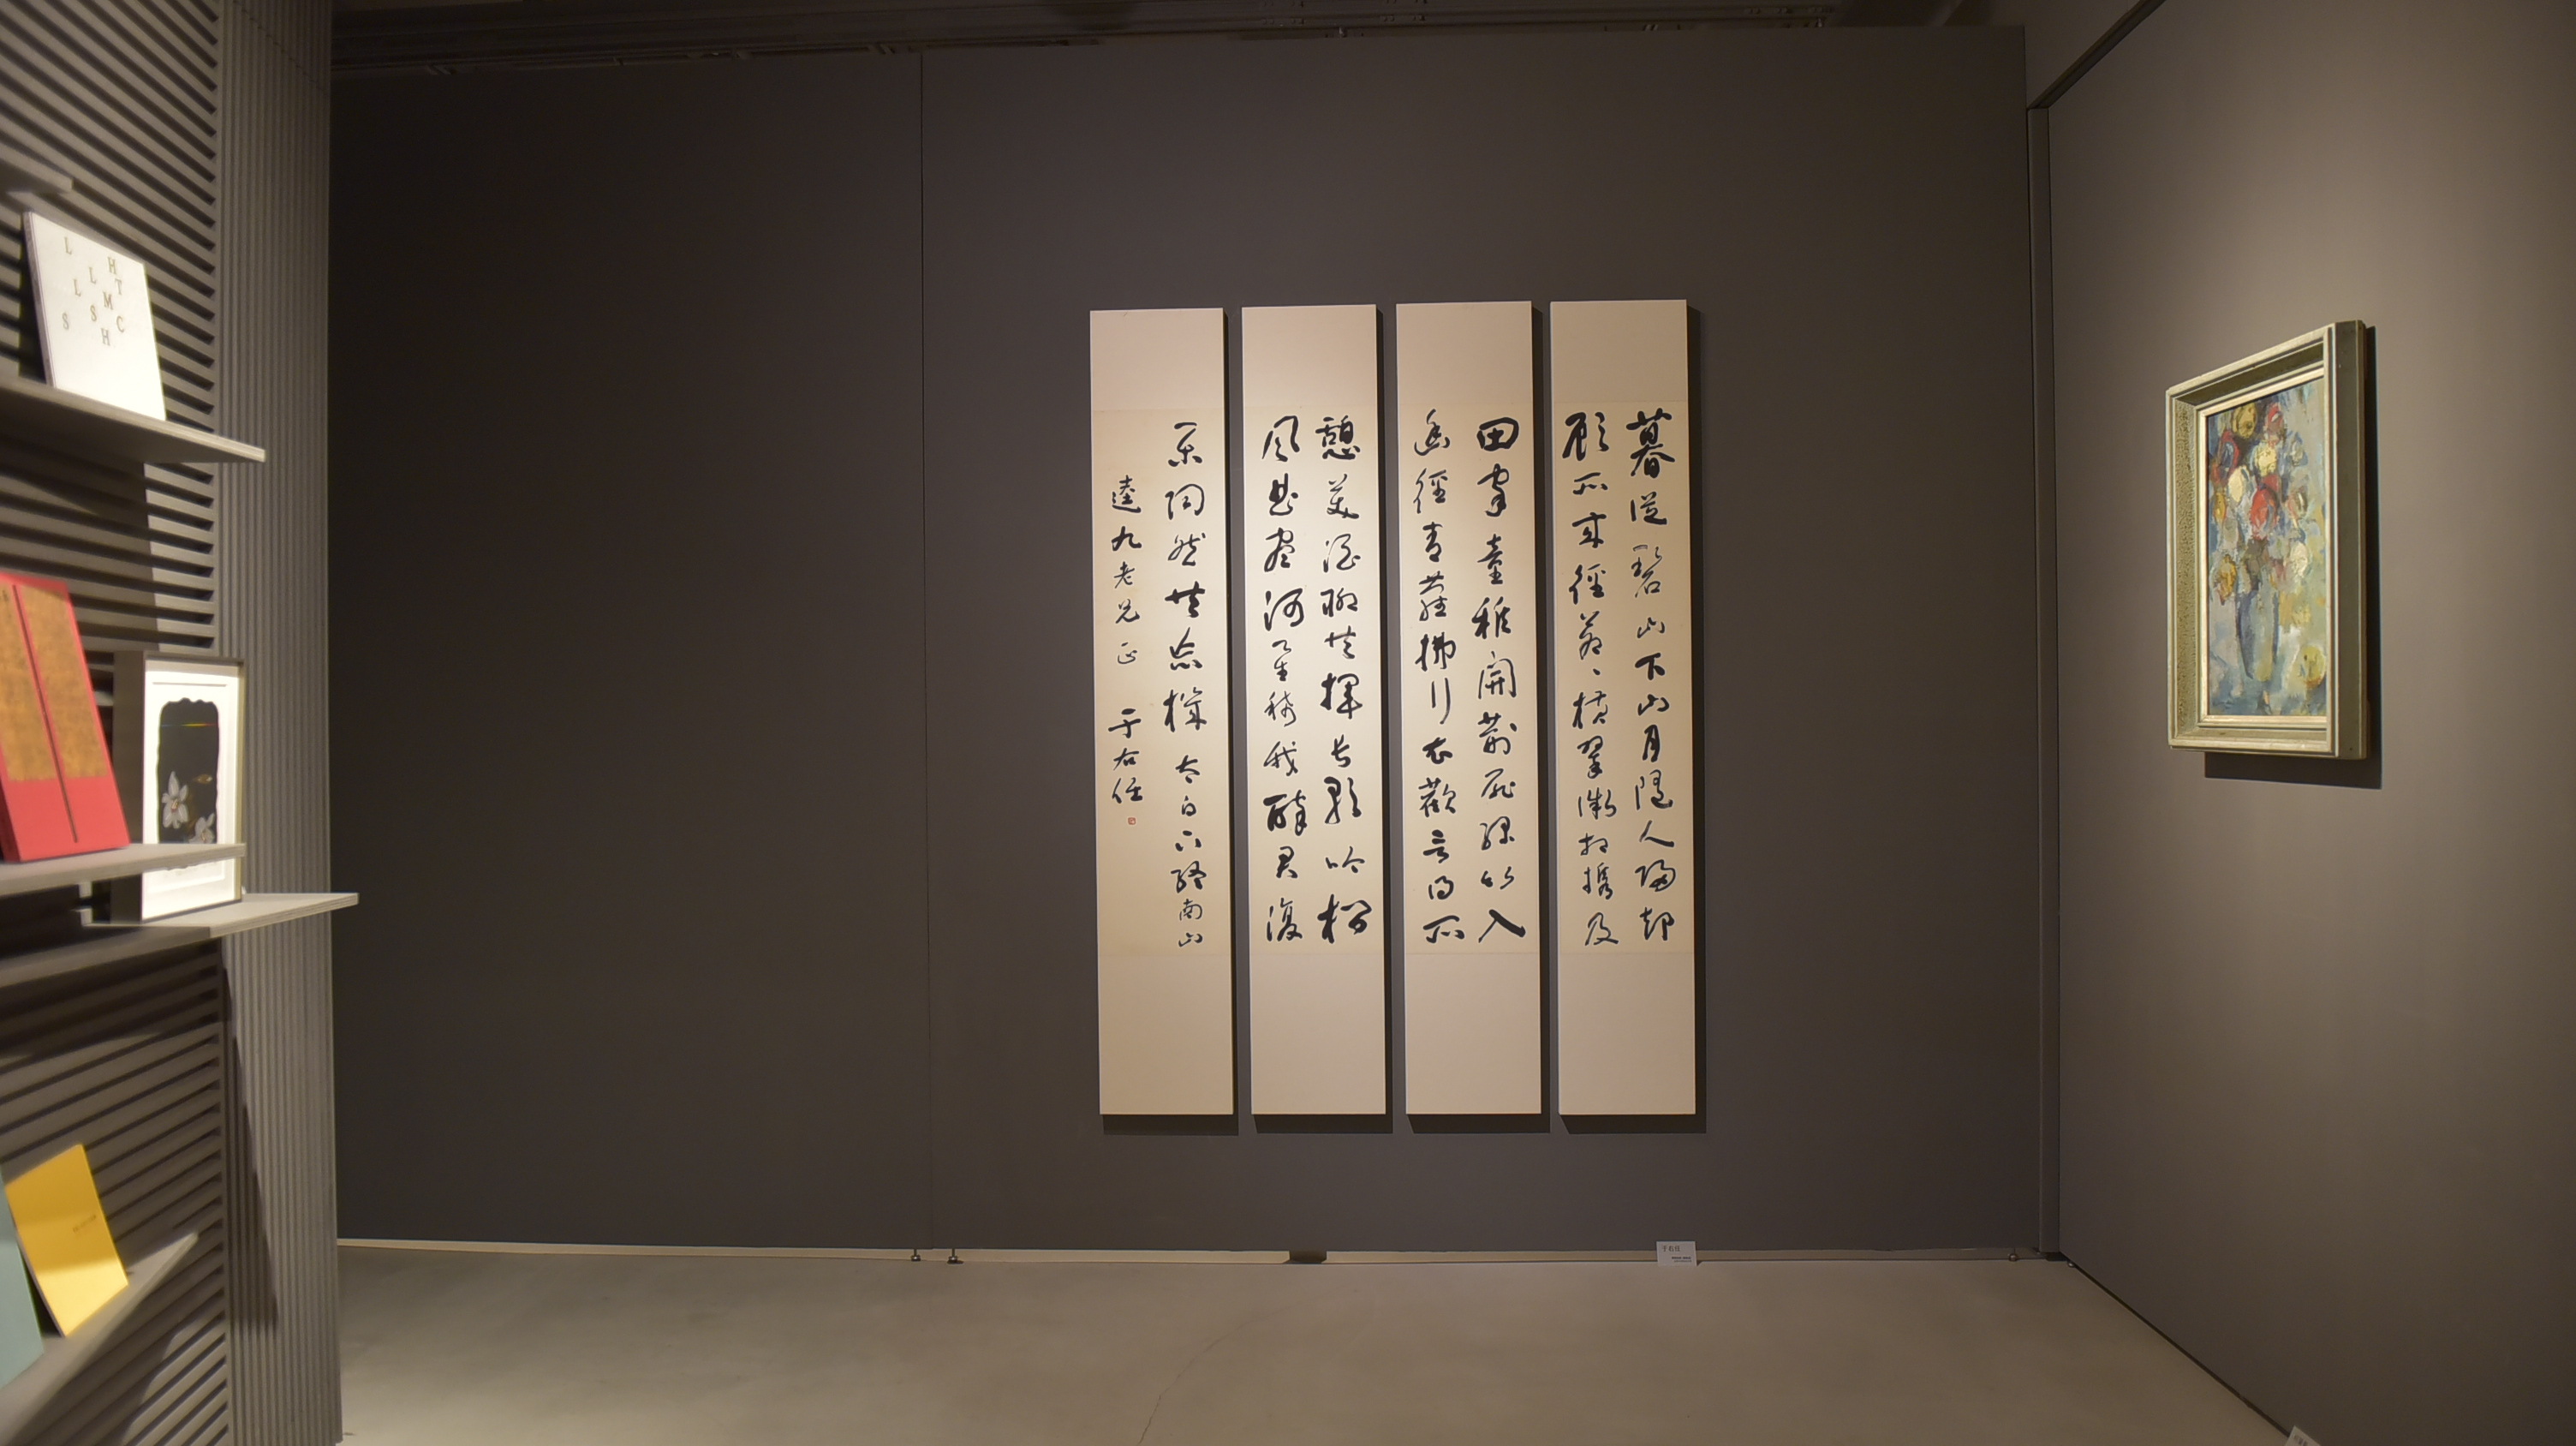 暮從碧山下山月隨人歸却
顧所來徑蒼〻橫翠微相攜及
田家童稚開荊扉綠竹入
幽徑青蘿拂行衣歡言得所
憩美酒聊共揮長歌吟松
風曲盡河星稀我醉君復
樂陶然共忘機 太白下終南山
逵九老兄正 于右任
L H
L T
L M
S S C
H
于右任